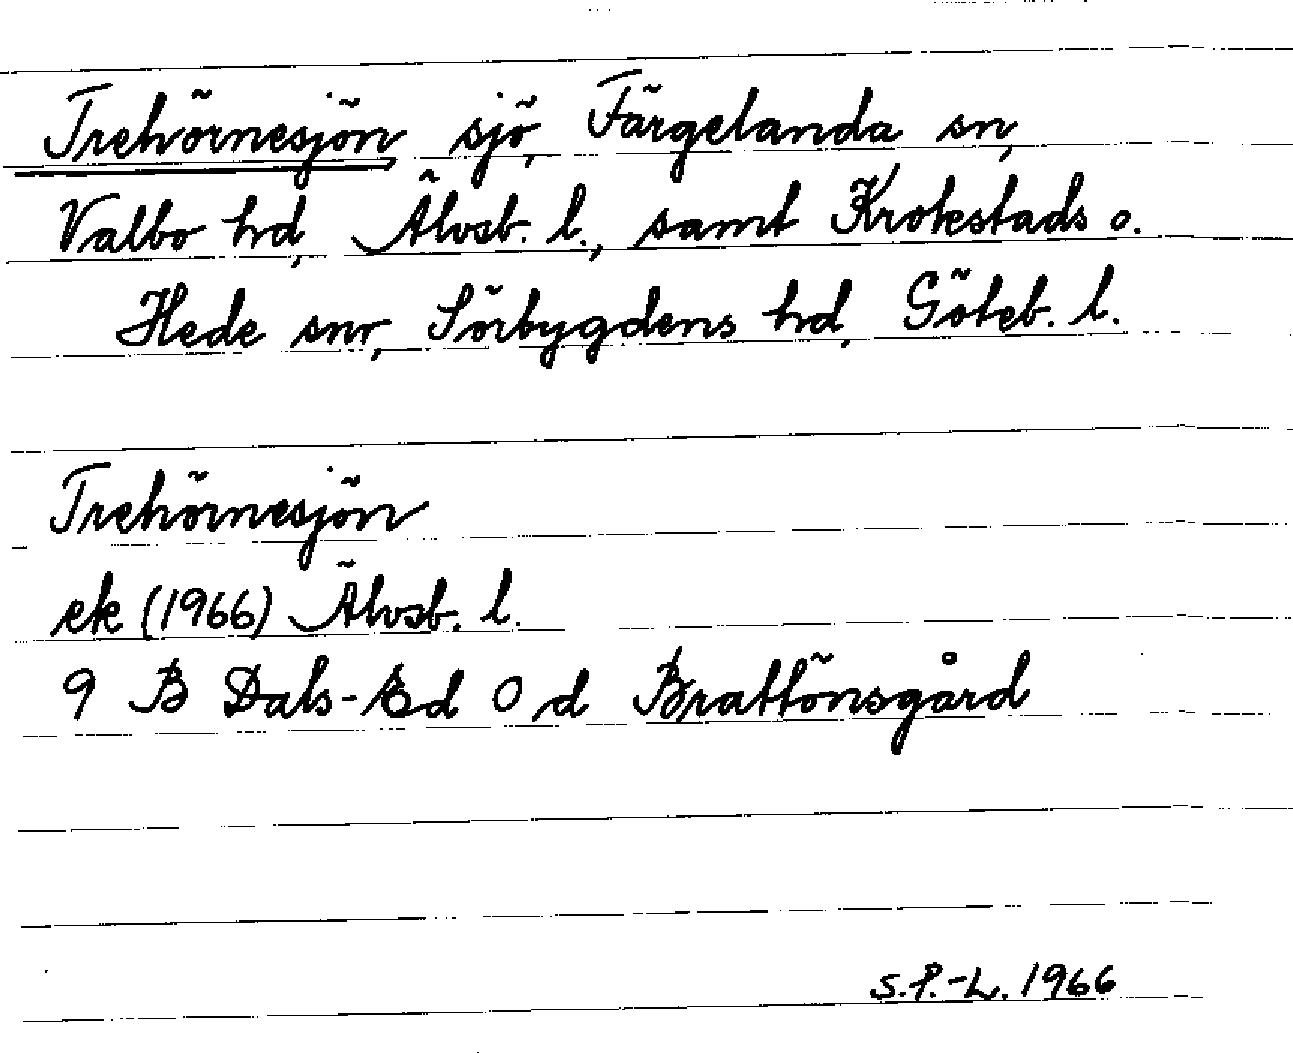 Trehörnesjön, sjö, Färgelanda sn,
Valbo hd, Älvsb. l., samt Krokstads o.
Hede snr, Sörbygdens hd, Göteb. l.
Trehörnesjön
ek (1966) Älvsb. l.
9 B Dals-Ed O d Brattönsgård
S.P.-L. 1966